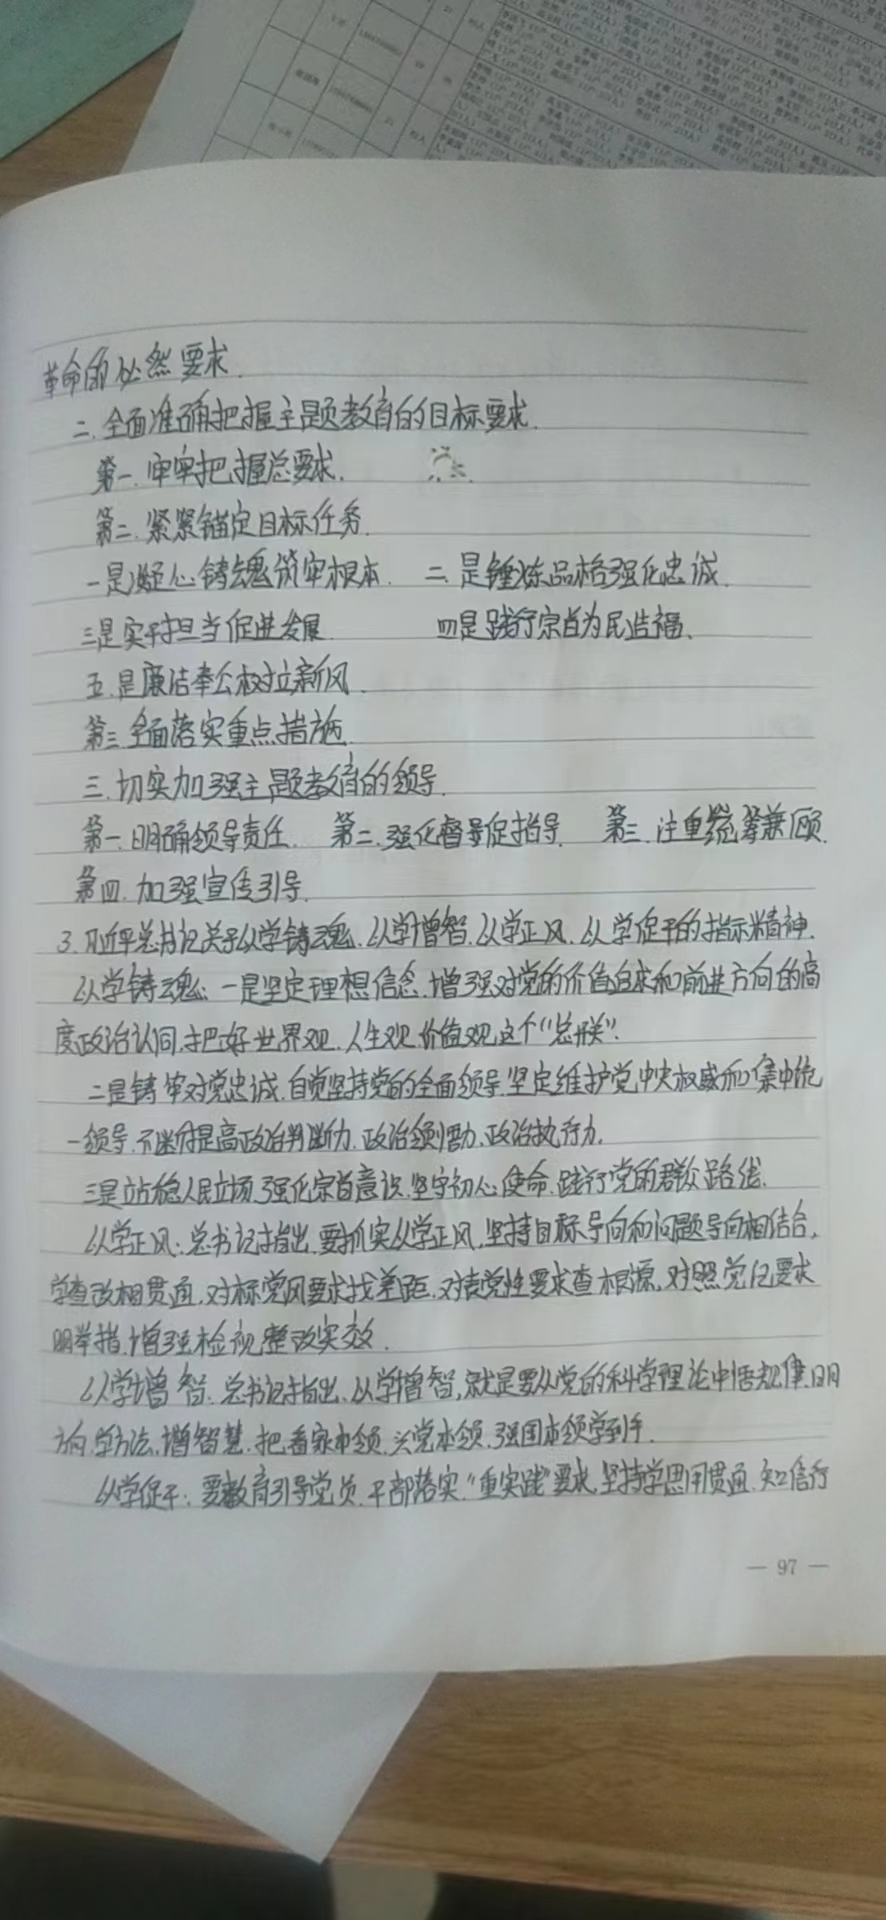 革命的必然要求.
二.全面准确把握主题教育的目标要求.
第一.牢牢把握总要求.
第二.紧紧锚定目标任务.
一是凝心铸魂筑牢根本. 二.是锤炼品格强化忠诚.
三是实干担当促进发展 四是践行宗旨为民造福、
五.是廉洁奉公树立新风.
第三全面落实重点措施
三.切实加强主题教育的领导.
第一.明确领导责任. 第二.强化督导促指导. 第三.注重统筹兼顾.
第四.加强宣传引导.
3.习近平总书记关于以学铸魂、以学增智.以学正风.以学促干的指示精神.
以学铸魂:一是坚定理想信念.增强对党的价值追求和前进方向的高
度政治认同.把好世界观.人生观.价值观这个"总开关".
二是铸牢对党忠诚.自觉坚持党的全面领导.坚定维护党中央权威和集中统
一领导.不断提高政治判断力.政治领悟力.政治执行力.
三是站稳人民立场.强化宗旨意识.坚守初心使命.践行党的群众路线.
以学正风:总书记指出.要抓实以学正风.坚持目标导向和问题导向相结合,
学查改相贯通.对标党风要求找差距.对表党性要求查根源.对照党纪要求
明举措.增强检视整改实效.
以学增智.总书记指出.以学增智,就是要从党的科学理论中悟规律.明
方向.学方法.增智慧.把看家本领.兴党本领.强国本领学到手.
以学促干:要教育引导党员.干部落实"重实践"要求.坚持学思用贯通.知信行
— 97 —